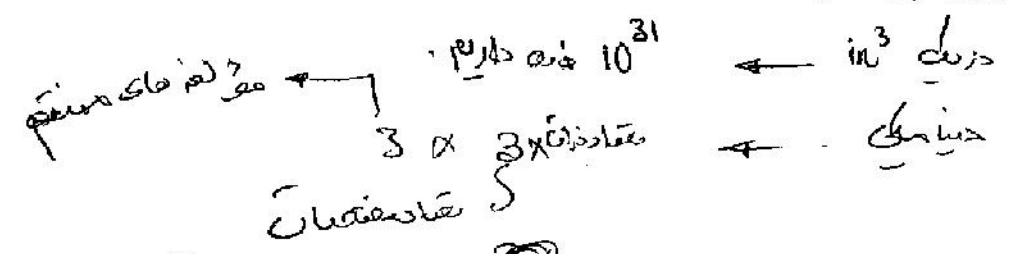 در یک in³ ← 10³¹ ذره داریم.
دینامیکی ← تعداد ذرات × 3 × 3 → مؤلفه های مستقل
تعداد مختصات